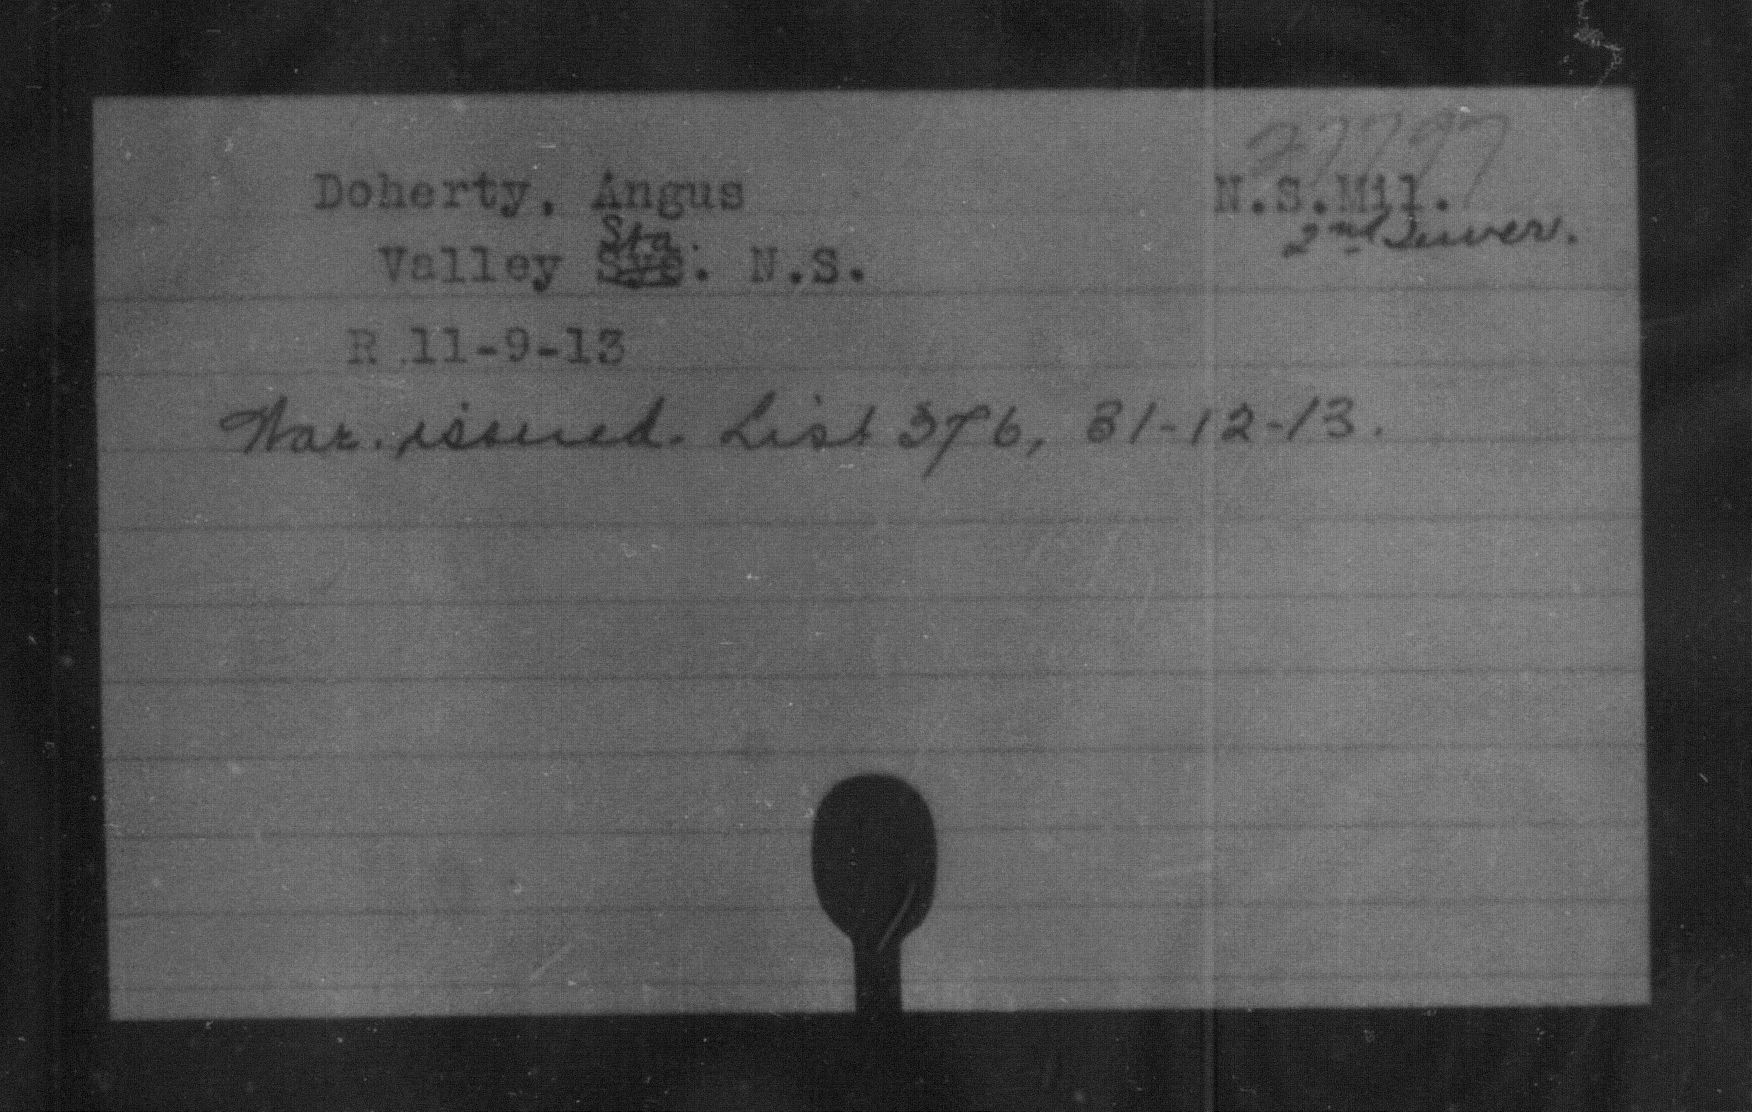 27797
Doherty, Angus N.S.Mil.
Sta. 2nd
Valley Sye. N.S.
R 11-9-13
War. issued. List 376, 31-12-13.